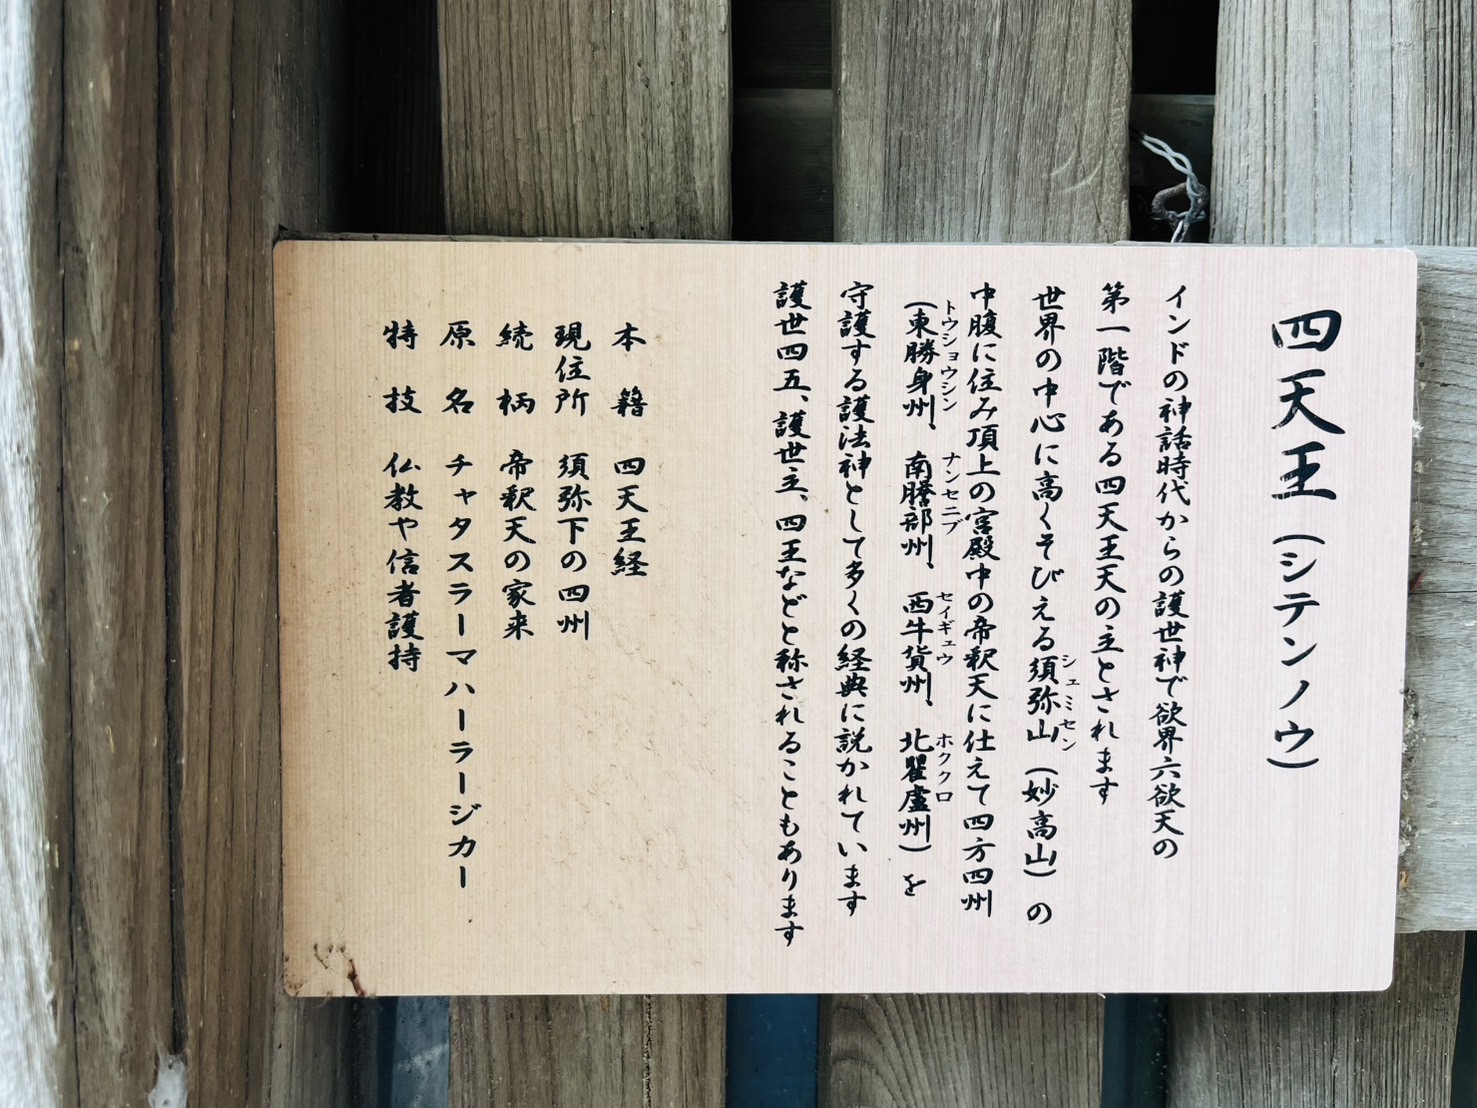 四天王（シテンノウ）
インドの神話時代からの護世神で欲界六欲天の
第一階である四天王天の主とされます
世界の中心に高くそびえる須弥山（妙高山）の
シュミセン
中腹に住み頂上の宮殿中の帝釈天に仕えて四方四州
（東勝身州、南贍部州、西牛貨州、北瞿盧州）を
トウショウシン ナンセニブ セイギュウ ホククロ
守護する護法神として多くの経典に説かれています
護世四五、護世主、四王などと称されることもあります
本籍 四天王経
現住所 須弥下の四州
続柄 帝釈天の家来
原名 チャタスラーマハーラージカー
特技 仏教や信者護持